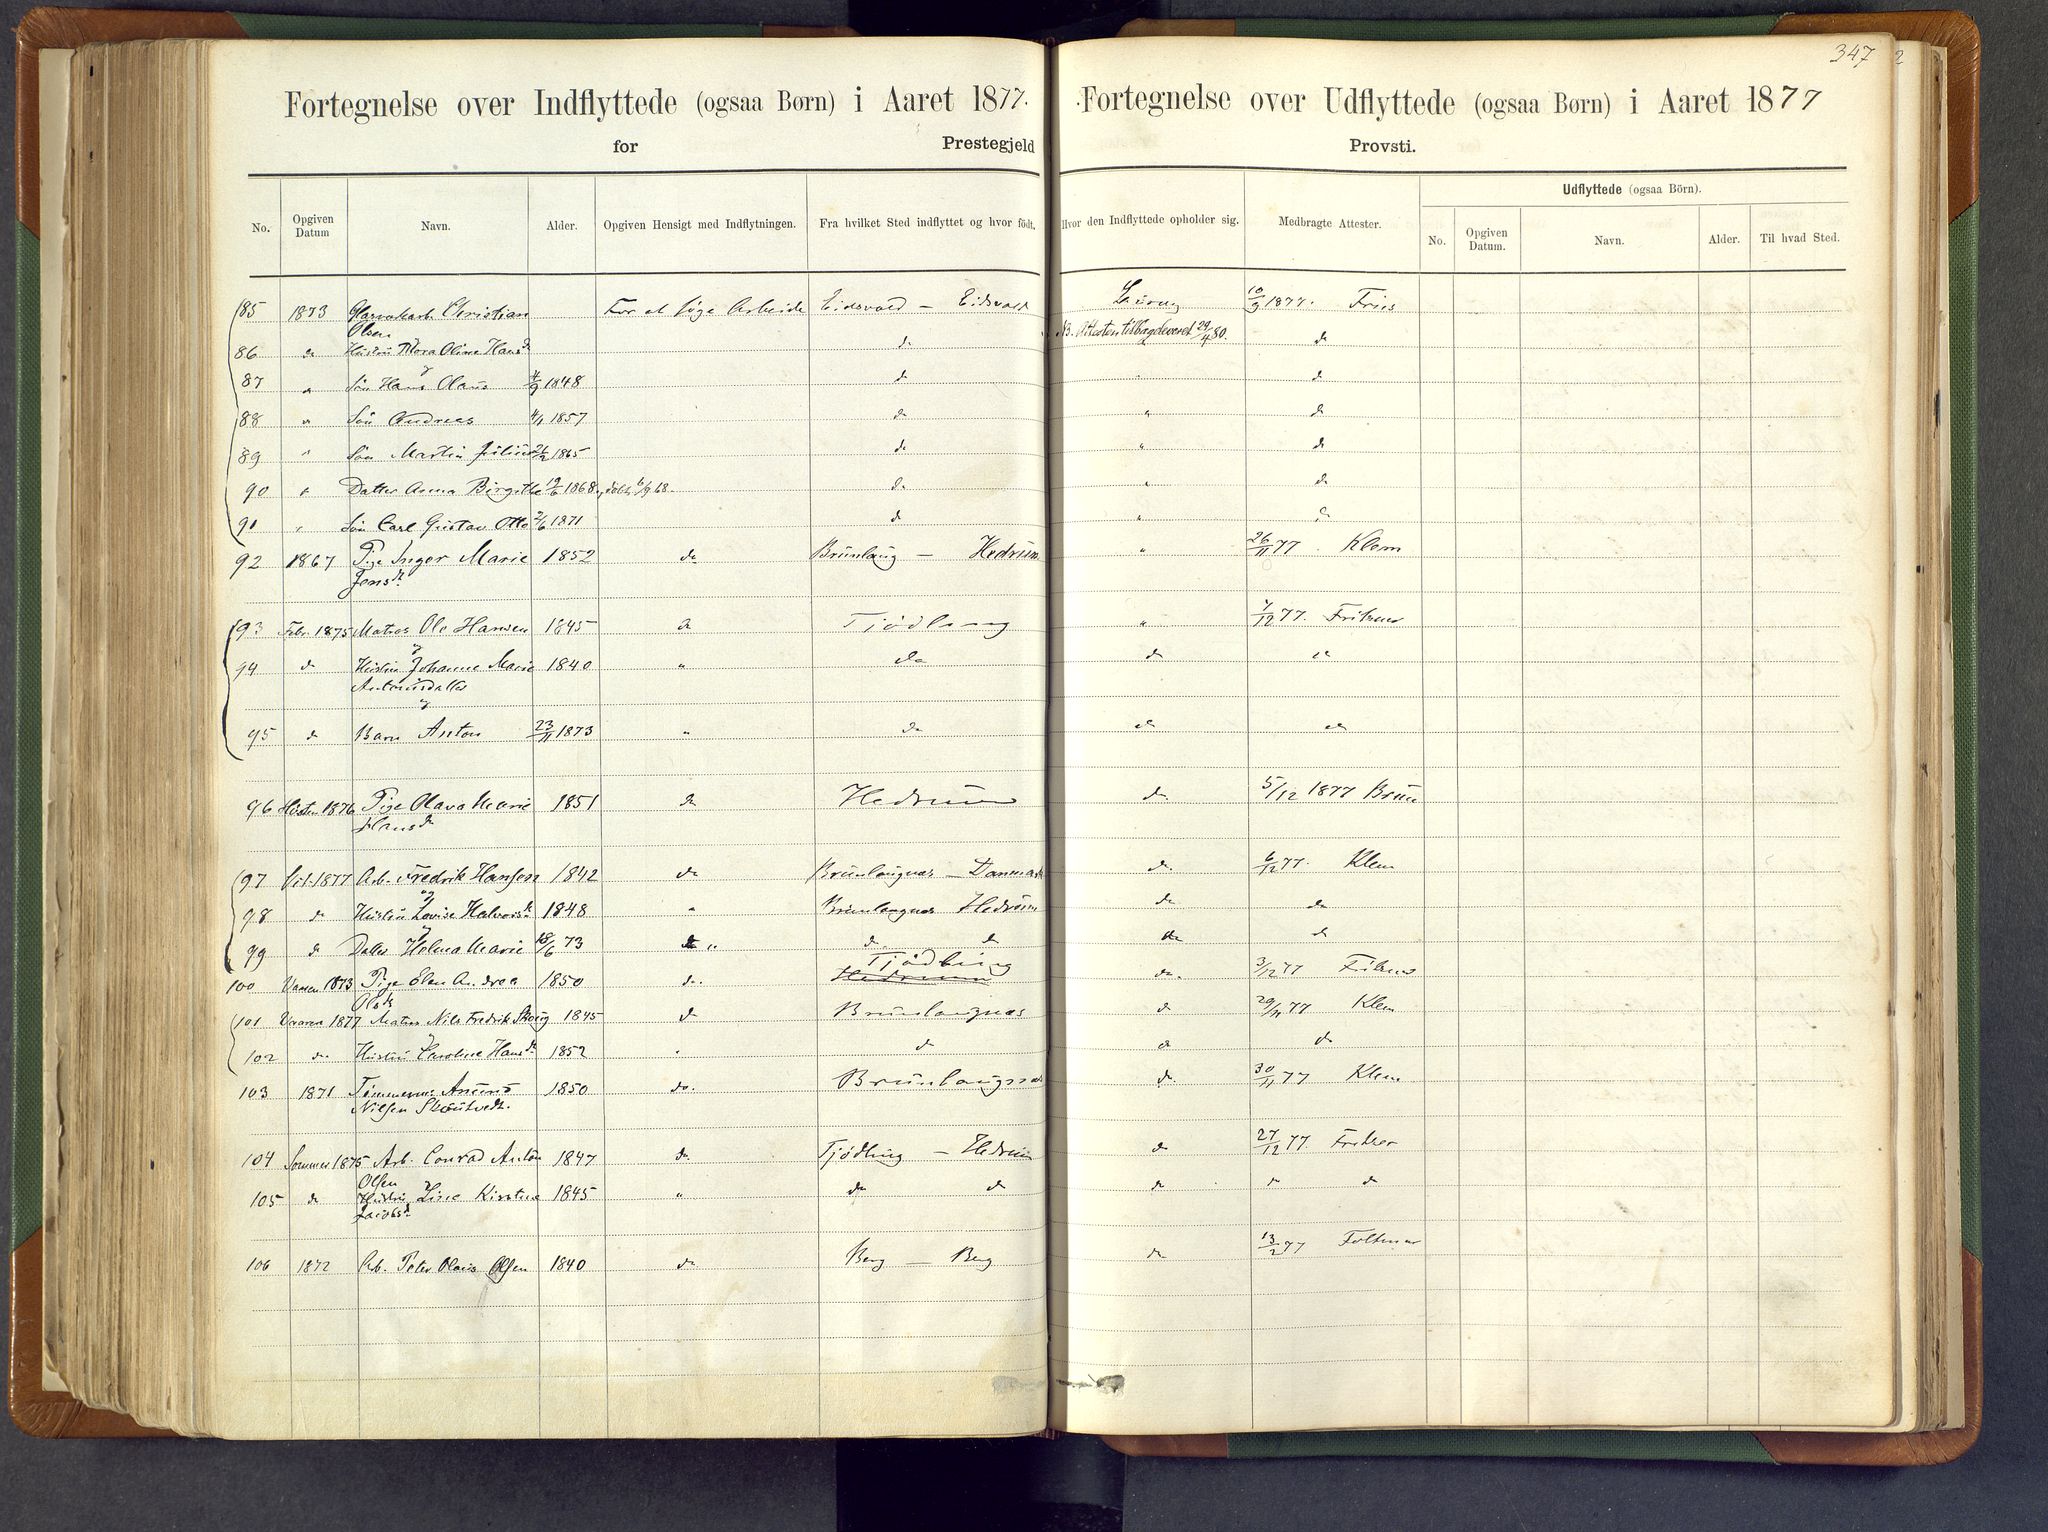 347
2
Fortegnelse over Indflyttede (ogsaa Børn) i Aaret 1877.
for Prestegjeld
Fortegnelse over Udflyttede (ogsaa Børn) i Aaret 1877
Provsti.
No. Opgiven Datum Navn. Alder. Opgiven Hensigt med Indflytningen. Fra hvilket Sted indflyttet og hvor födt. Hvor den Indflyttede opholder sig. Medbragte Attester. Udflyttede (ogsaa Börn).
No. Opgiven Datum. Navn. Alder. Til hvad Sted.
85 1873 Christian For at søge Arbeide Eidsvold — Eidsvold Laurvig 10/9 1877. Fries
Olsen NB. Attesten tilbageleveret 29/4 80.
86 do Hustru Oline Hansd. do " do
og
87 " Søn Hans Olaus 4/9 1848 do " do
88 " Søn Andreas 4/1 1857 do " do
89 " Søn Martin Julius 26/2 1865 do " do
90 " Datter Anna Birgitte 19/6 1868, døbt 6/9 68. do " do
91 " Søn Carl Gustav Otto 2/6 1871 do " do
92 1867 Pige Inger Marie 1852 do Brunlaug — Hedrum " 26/11 77. Klem
Jensd.
93 Febr. 1875 Matros Ole Hansen 1845 do Tjødling " 7/12 77. Fritzner
og
94 do Hustru Johanne Marie 1840 " do do do
Antonsdatter
og
95 do Barn Anton 23/11 1873 " do do do
96 Høsten 1876 Pige Olava Marie 1851 do Hedrum do. 5/12 1877 Bruun
Hansd.
97 1877 Arb. Fredrik Hansen 1842 do Brunlaugnæs — Danmark do. 6/12 77. Klem
og
98 do Hustru Lovise Halvorsd. 1848 " Brunlaugnæs Hedrum do do
og
99 do Datter Helena Marie 18/6 73 do " do. do do do
Tjødling
100 Vaaren 1873 Pige Elen Andrea 1850 do. Hedrum do. 3/12 77 Fritzner
Olsd.
101 Vaaren 1877 Matros Nils Fredrik Skoug 1845 do Brunlaugnæs do 29/11 77 Klem
102 do Hustru Caroline Hansd. 1852 " do do do
103 1871 Tømmerm. Anund 1850 do. Brunlaugnæs do. 30/11 77 Klem
Nilsen Skoutvedt.
104 Sommer 1875 Arb. Conrad Anton 1847 do Tjødling — Hedrum do 27/12 77. Fritzner
Olsen
105 do Hustru Line Kirstine 1845 " do do do " do
Jacobsd.
106 1872 Arb. Peter Olaus Olsen 1840 do Berg — Berg do 13/2 77